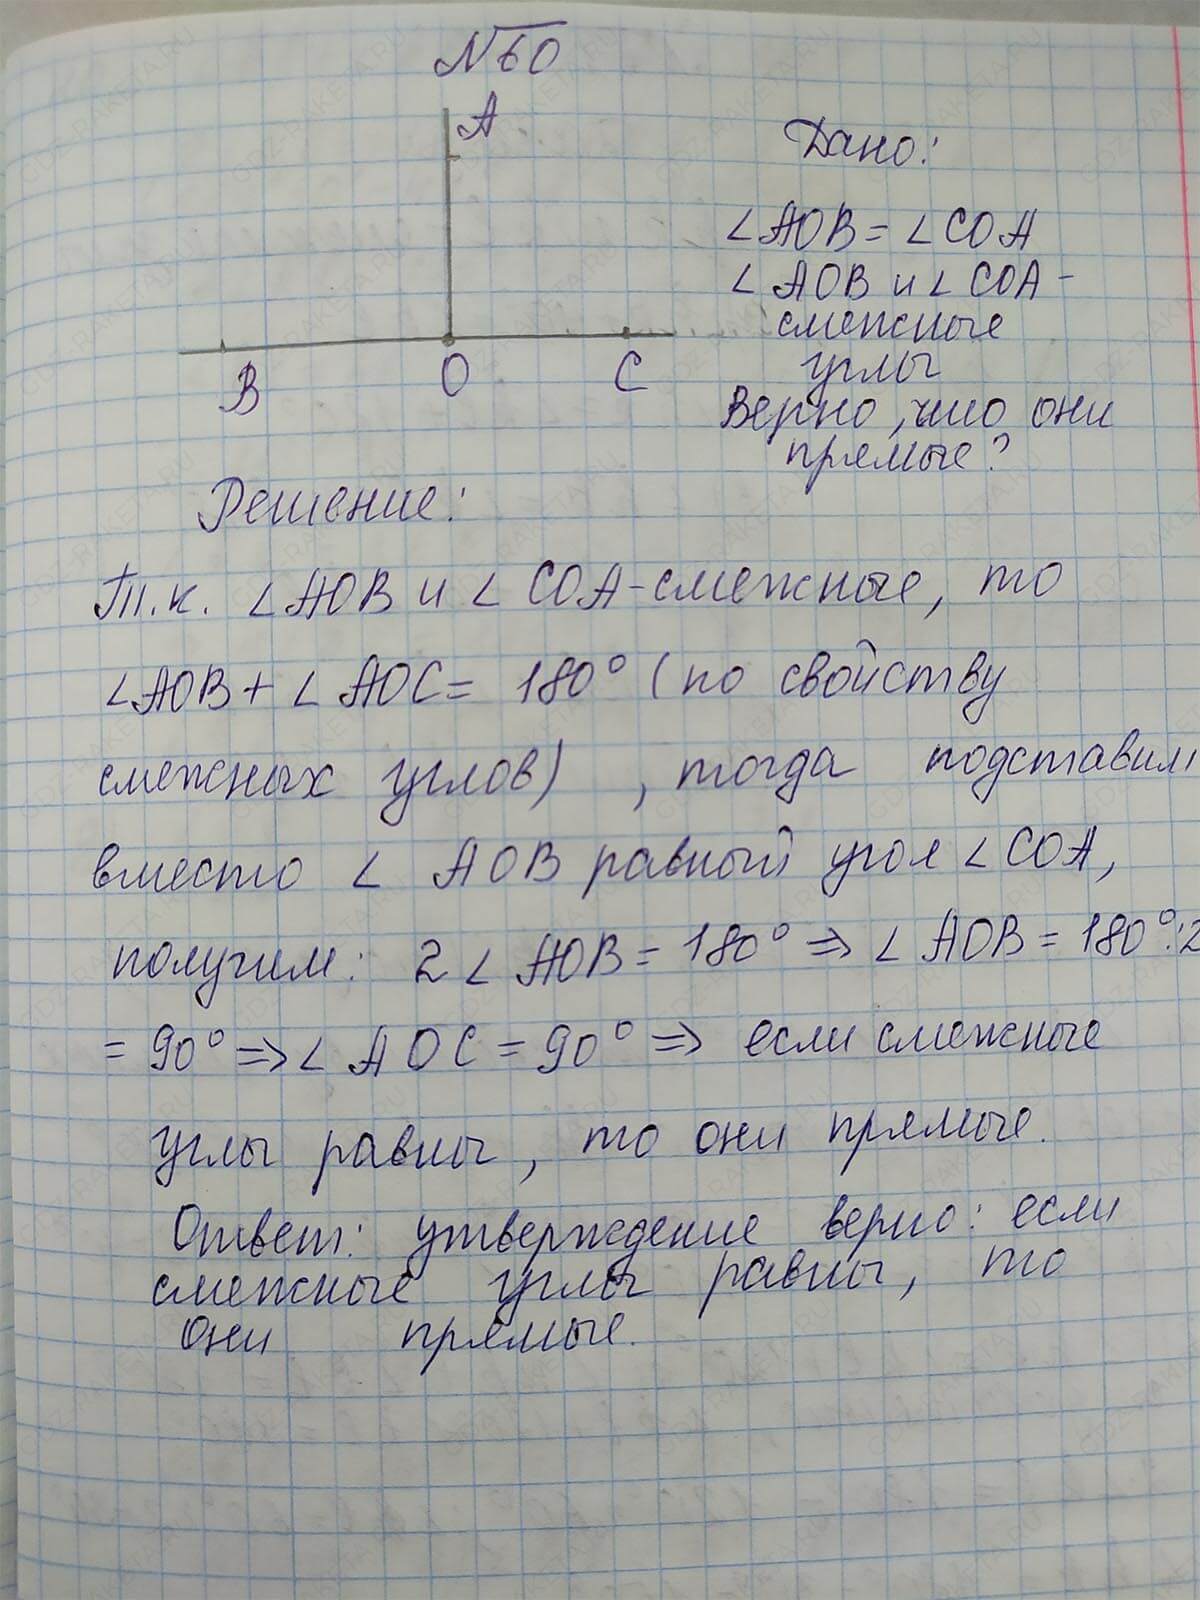 №60
A
B O C
Дано:
∠AOB = ∠COA
∠AOB и ∠COA -
смежные
углы
Верно, что они
прямые?
Решение:
Т.к. ∠AOB и ∠COA - смежные, то
∠AOB + ∠AOC = 180° (по свойству
смежных углов), тогда подставим
вместо ∠ AOB равный угол ∠COA,
получим: 2∠AOB = 180° ⇒ ∠AOB = 180°:2
= 90° ⇒ ∠AOC = 90° ⇒ если смежные
углы равны, то они прямые.
Ответ: утверждение верно: если
смежные углы равны, то
они прямые.